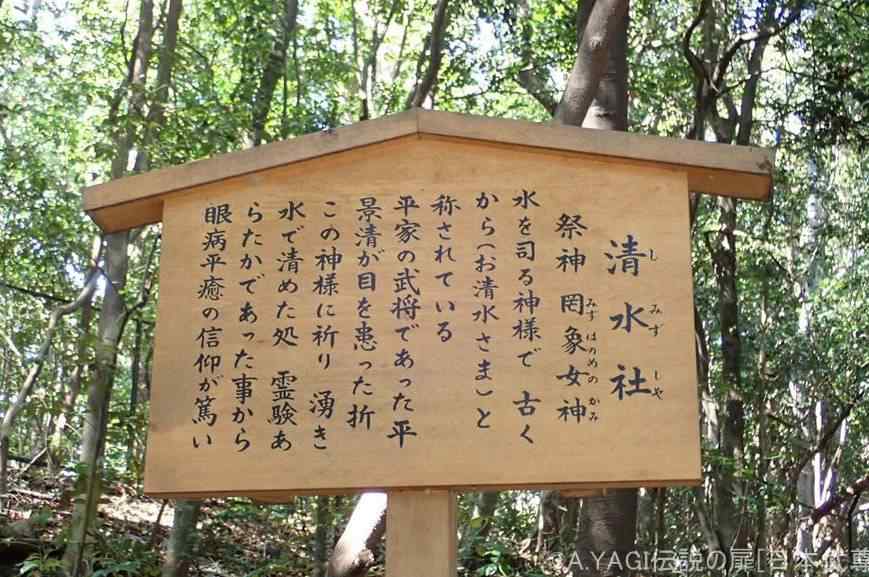 清水社
し みず しや
祭神 罔象女神
みずはのめの かみ
水を司る神様で 古く
から(お清水さま)と
称されている
平家の武将であった平
景清が目を患った折
この神様に祈り 湧き
水で清めた処 霊験あ
らたかであった事から
眼病平癒の信仰が篤い
©A.YAGI伝説の扉[日本武尊